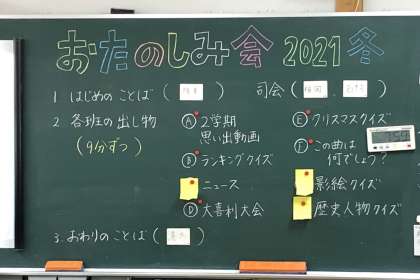 おたのしみ会 2021 冬
1 はじめの ことば ( ) 司会 ( )
2. 各班の出し物
(9分ずつ)
Ⓐ 2学期
思い出動画
Ⓑ ランキングクイズ
ニュース
Ⓓ 大喜利大会
Ⓔ クリスマスクイズ
Ⓕ この曲は
何でしょう?
影絵クイズ
歴史人物クイズ
3. おわりのことば ( )